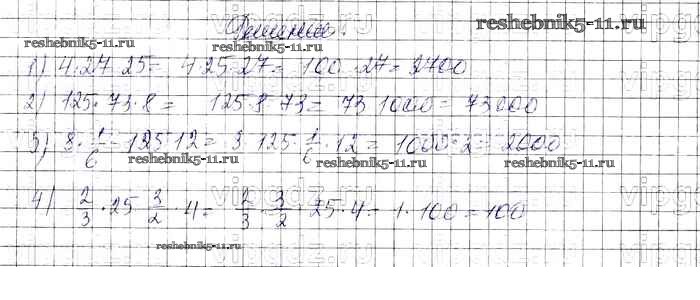 Решение:
reshebnik5-11.ru
reshebnik5-11.ru reshebnik5-11.ru
1) 4·27·25= 4·25·27= 100·27= 2700
2) 125·73·8= 125·8·73= 73·1000= 73000
3) 8·1/6·125·12= 8·125·1/6·12= 1000·2= 2000
reshebnik5-11.ru reshebnik5-11.ru reshebnik5-11.ru
4) 2/3·25·3/2·4= 2/3·3/2·25·4= 1·100=100
reshebnik5-11.ru